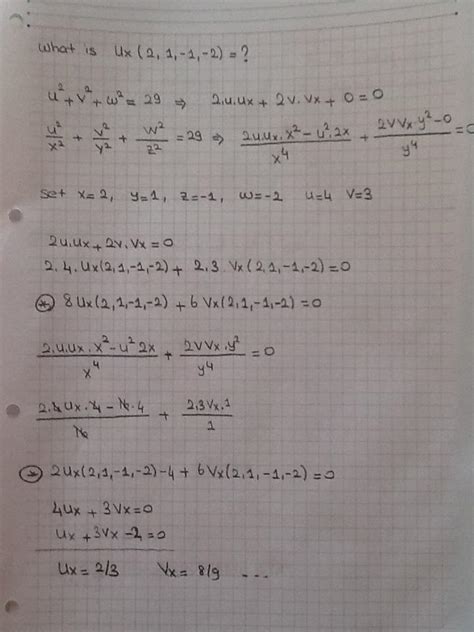 What is Ux(2,1,-1,-2)=?
u²+v²+w²=29 ⇒ 2u.ux+2v.Vx+0=0
u²/x² + v²/y² + w²/z² = 29 ⇒ (2u.ux.x²-u².2x)/x⁴ + (2v.Vx.y²-0)/y⁴ = 0
Set x=2, y=1, z=-1, w=-2 u=4 v=3
2u.ux+2v.Vx=0
2.4.Ux(2,1,-1,-2)+2.3.Vx(2,1,-1,-2)=0
* 8Ux(2,1,-1,-2)+6Vx(2,1,-1,-2)=0
(2.u.ux.x²-u²2x)/x⁴ + (2vVx.y²)/y⁴ = 0
(2.4Ux.4-16.4)/16 + (2.3Vx.1)/1
* 2Ux(2,1,-1,-2)-4+6Vx(2,1,-1,-2)=0
4Ux+3Vx=0
Ux+3Vx-2=0
Ux=2/3 Vx=8/9 ...